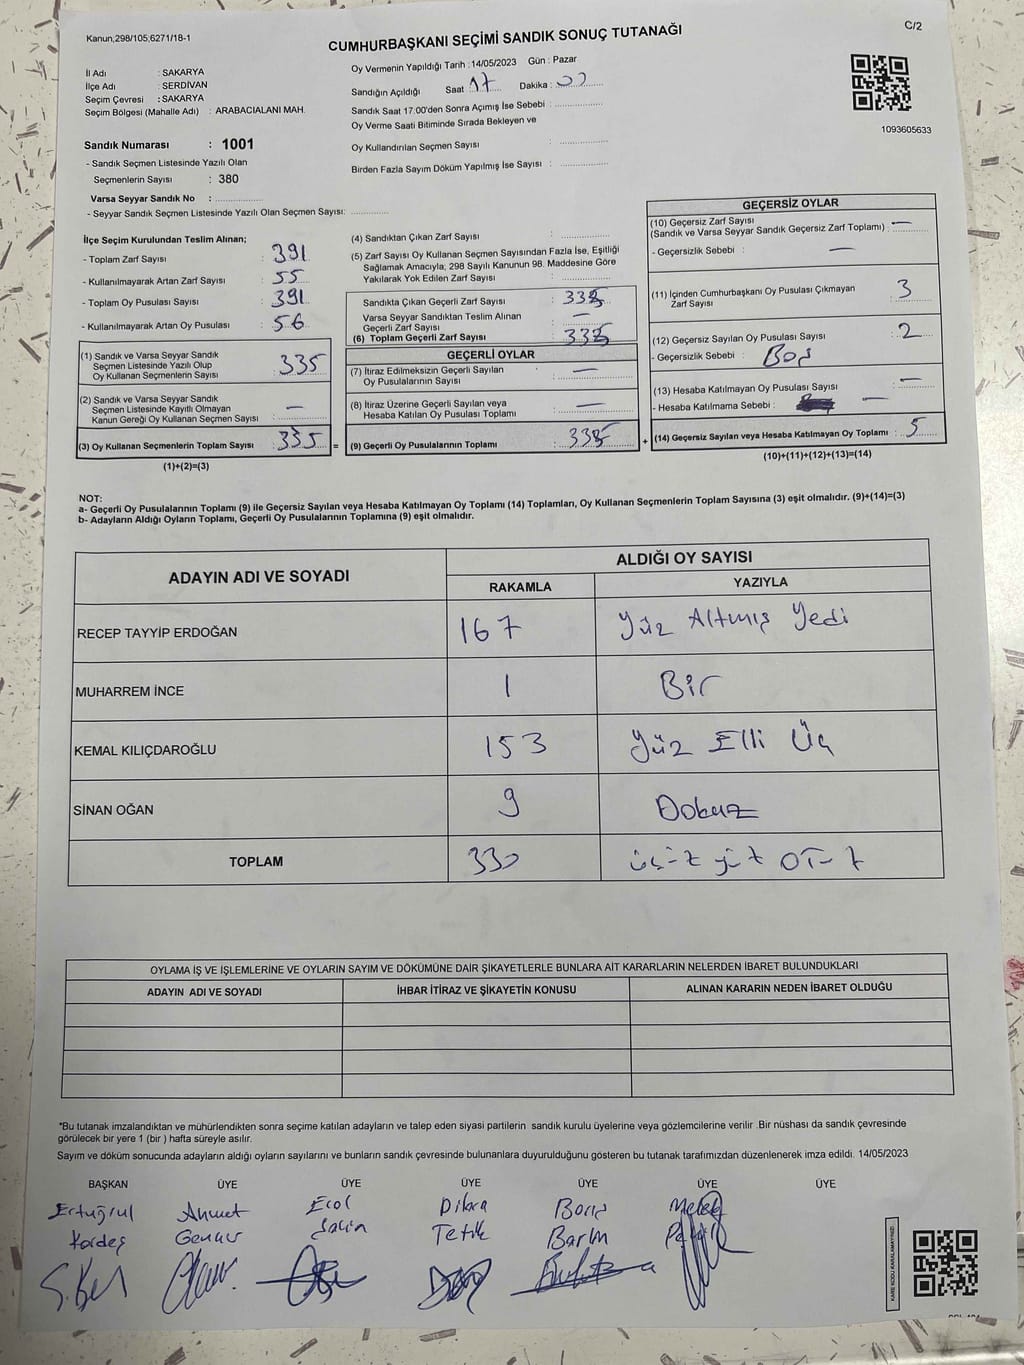 Kanun,298/105,6271/18-1
C/2
CUMHURBAŞKANI SEÇİMİ SANDIK SONUÇ TUTANAĞI
İl Adı : SAKARYA
İlçe Adı : SERDİVAN
Seçim Çevresi : SAKARYA
Seçim Bölgesi (Mahalle Adı) : ARABACIALANI MAH.
Oy Vermenin Yapıldığı Tarih :14/05/2023 Gün : Pazar
Sandığın Açıldığı Saat 17 Dakika :
Sandık Saat 17:00'den Sonra Açımış İse Sebebi :
Oy Verme Saati Bitiminde Sırada Bekleyen ve
Oy Kullandırılan Seçmen Sayısı :
Birden Fazla Sayım Döküm Yapılmış İse Sayısı :
1093605633
Sandık Numarası : 1001
- Sandık Seçmen Listesinde Yazılı Olan
Seçmenlerin Sayısı : 380
Varsa Seyyar Sandık No :
- Seyyar Sandık Seçmen Listesinde Yazılı Olan Seçmen Sayısı:
İlçe Seçim Kurulundan Teslim Alınan;
- Toplam Zarf Sayısı : 391
- Kullanılmayarak Artan Zarf Sayısı : 55
- Toplam Oy Pusulası Sayısı : 391
- Kullanılmayarak Artan Oy Pusulası : 56
(1) Sandık ve Varsa Seyyar Sandık
Seçmen Listesinde Yazılı Olup
Oy Kullanan Seçmenlerin Sayısı : 335
(2) Sandık ve Varsa Seyyar Sandık
Seçmen Listesinde Kayıtlı Olmayan
Kanun Gereği Oy Kullanan Seçmen Sayısı : —
(3) Oy Kullanan Seçmenlerin Toplam Sayısı : 335 =
(1)+(2)=(3)
(4) Sandıktan Çıkan Zarf Sayısı :
(5) Zarf Sayısı Oy Kullanan Seçmen Sayısından Fazla İse, Eşitliği
Sağlamak Amacıyla; 298 Sayılı Kanunun 98. Maddesine Göre
Yakılarak Yok Edilen Zarf Sayısı :
Sandıkta Çıkan Geçerli Zarf Sayısı :
Varsa Seyyar Sandıktan Teslim Alınan
Geçerli Zarf Sayısı : —
(6) Toplam Geçerli Zarf Sayısı :
GEÇERLİ OYLAR
(7) İtiraz Edilmeksizin Geçerli Sayılan
Oy Pusulalarının Sayısı : —
(8) İtiraz Üzerine Geçerli Sayılan veya
Hesaba Katılan Oy Pusulası Toplamı : —
(9) Geçerli Oy Pusulalarının Toplamı : +
GEÇERSİZ OYLAR
(10) Geçersiz Zarf Sayısı
(Sandık ve Varsa Seyyar Sandık Geçersiz Zarf Toplamı) : —
- Geçersizlik Sebebi : —
(11) İçinden Cumhurbaşkanı Oy Pusulası Çıkmayan
Zarf Sayısı 3
(12) Geçersiz Sayılan Oy Pusulası Sayısı 2
- Geçersizlik Sebebi : Boş
(13) Hesaba Katılmayan Oy Pusulası Sayısı —
- Hesaba Katılmama Sebebi : —
(14) Geçersiz Sayılan veya Hesaba Katılmayan Oy Toplamı : 5
(10)+(11)+(12)+(13)=(14)
NOT:
a- Geçerli Oy Pusulalarının Toplamı (9) ile Geçersiz Sayılan veya Hesaba Katılmayan Oy Toplamı (14) Toplamları, Oy Kullanan Seçmenlerin Toplam Sayısına (3) eşit olmalıdır. (9)+(14)=(3)
b- Adayların Aldığı Oyların Toplamı, Geçerli Oy Pusulalarının Toplamına (9) eşit olmalıdır.
ADAYIN ADI VE SOYADI
ALDIĞI OY SAYISI
RAKAMLA YAZIYLA
RECEP TAYYİP ERDOĞAN 167 Yüz Altmış Yedi
MUHARREM İNCE 1 Bir
KEMAL KILIÇDAROĞLU 153 Yüz Elli Üç
SİNAN OĞAN 9 Dokuz
TOPLAM 330
OYLAMA İŞ VE İŞLEMLERİNE VE OYLARIN SAYIM VE DÖKÜMÜNE DAİR ŞİKAYETLERLE BUNLARA AİT KARARLARIN NELERDEN İBARET BULUNDUKLARI
ADAYIN ADI VE SOYADI İHBAR İTİRAZ VE ŞİKAYETİN KONUSU ALINAN KARARIN NEDEN İBARET OLDUĞU
*Bu tutanak imzalandıktan ve mühürlendikten sonra seçime katılan adayların ve talep eden siyasi partilerin sandık kurulu üyelerine veya gözlemcilerine verilir .Bir nüshası da sandık çevresinde
görülecek bir yere 1 (bir ) hafta süreyle asılır.
Sayım ve döküm sonucunda adayların aldığı oyların sayılarını ve bunların sandık çevresinde bulunanlara duyurulduğunu gösteren bu tutanak tarafımızdan düzenlenerek imza edildi. 14/05/2023
BAŞKAN ÜYE ÜYE ÜYE ÜYE ÜYE ÜYE
Ertuğrul Ahmet Erol Dilara Barış Melek
Kardeş Tetik
KARE KODU KARALAMAYINIZ!